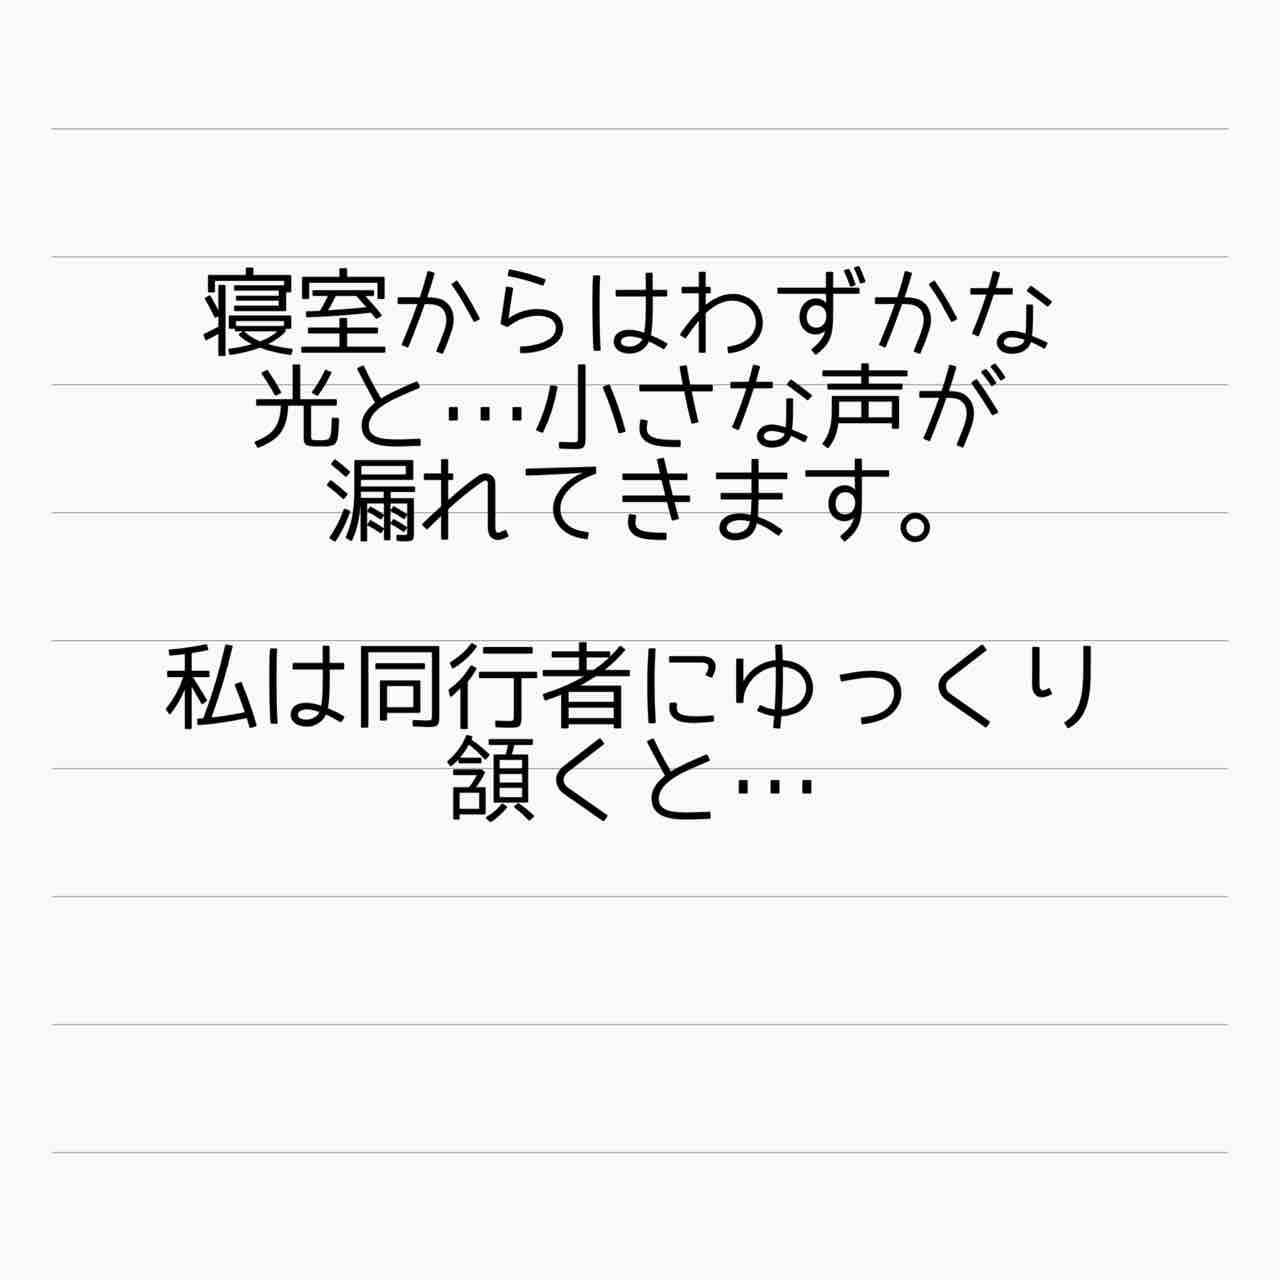 寝室からはわずかな
光と…小さな声が
漏れてきます。
私は同行者にゆっくり
頷くと…